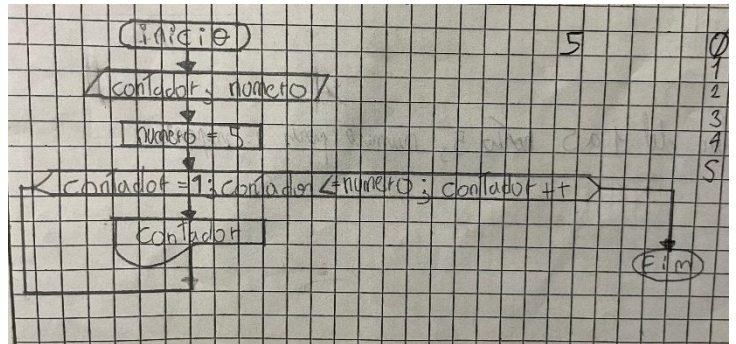 inicio
5
0
1
contador, numero
2
3
numero = 5
4
5
contador = 1; contador <= numero; contador ++
contador
Fim